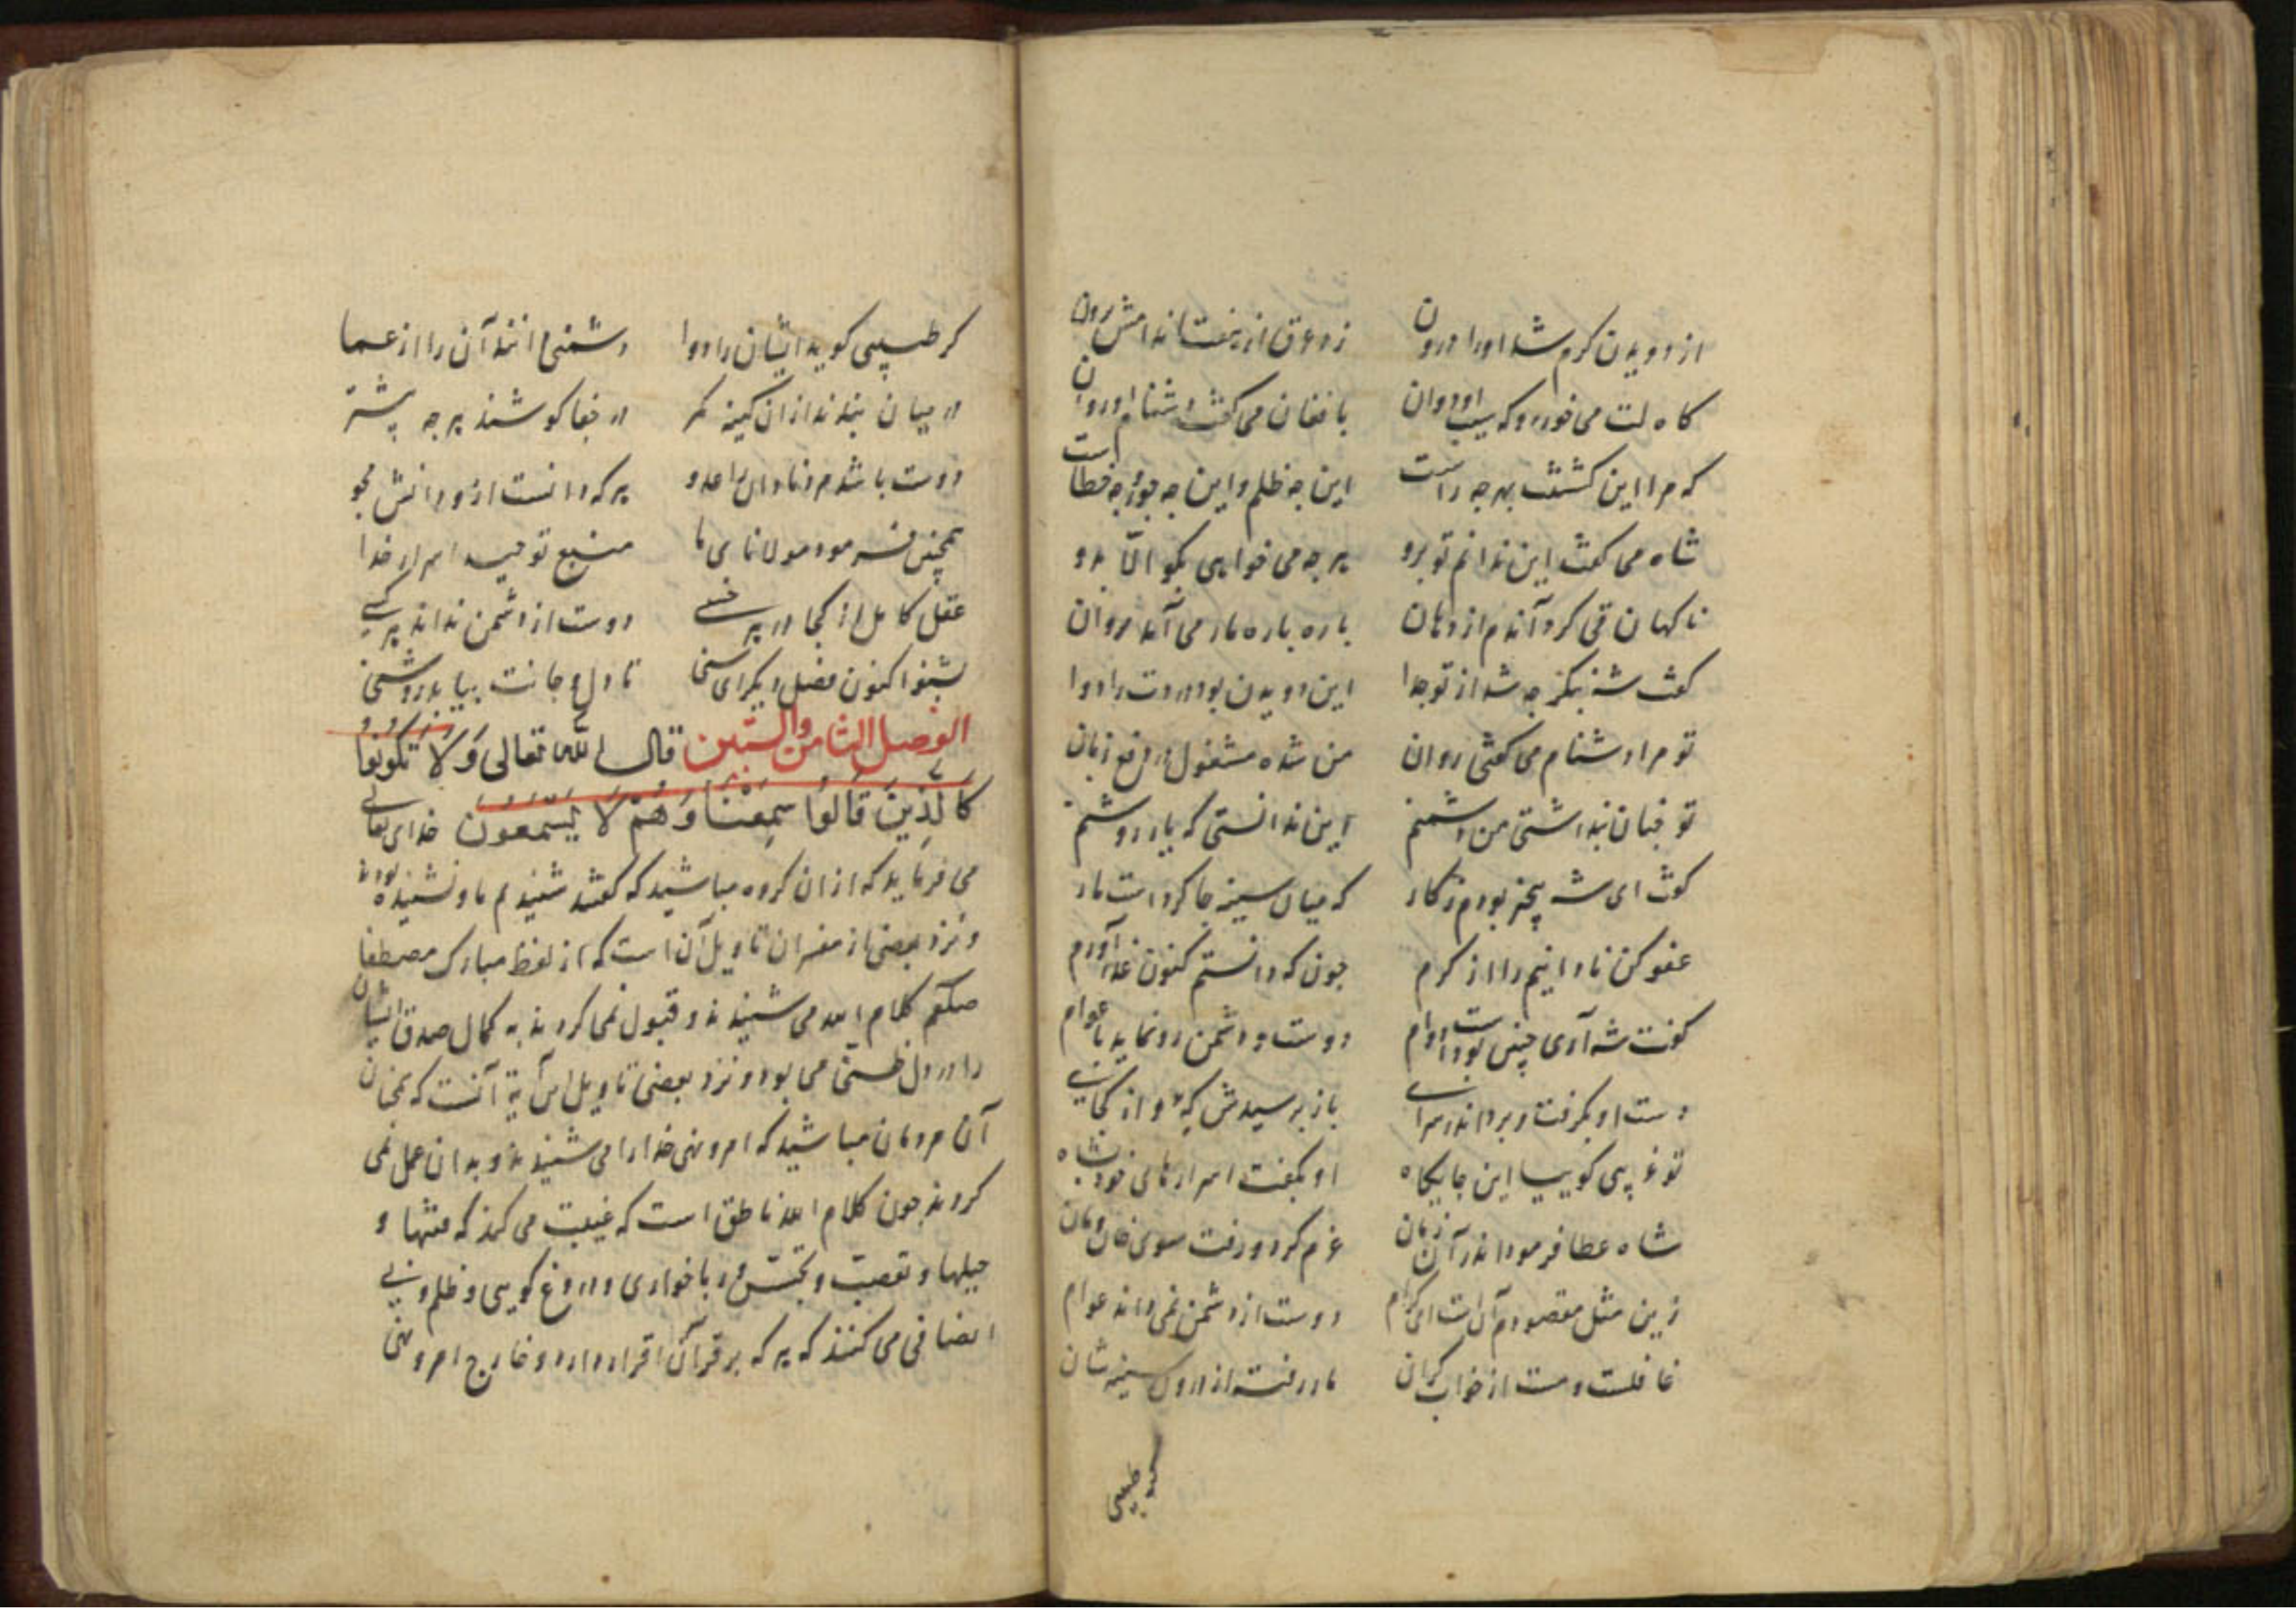 از دویدن کرم شد اورا درون زو عرق از هفت اندامش برون
کاه لت می خورد و که سیب او دوان با فغان می کفت دشنام او روان
که مرا این کشتنت بهر چه راست این چه ظلم و این چه جور و چه خطاست
شاه می کفت این ندانم تو برو هر چه می خواهی بکو الّا بدو
ناکهان قی کرد آندم از دهان باره باره مار می آمد روان
کفت شه بنکر چه شد از تو جدا این دویدن بود دردت را دوا
تو مرا دشنام می کفتی روان من شده مشغول در دفع زیان
تو چنان بنداشتی من دشمنم این ندانستی که یار روشنم
کفت ای شه بیخبر بودم ز کار که میان سینه جا کردست مار
عفو کن نادانیم را از کرم چون که دانستم کنون عذر آورم
کفت شه آری چنین بودست دوام دوست و دشمن رو نماید با عوام
دست او بکرفت و برد اندر سرای باز برسیدش که و از کجایی
تو غریبی کوییا این جایکاه او بکفت اسرارهای خود بشاه
شاه عطا فرمود اندر آن زمان عزم کرد و رفت سوی خان و مان
زین مثل مقصودم آنست ای کرام دوست از دشمن نمی داند عوام
غافلست و مست از خواب کران مار رفته از درون سینه شان
کر طبیبی
کر طبیبی کوید ایشان را دوا دشمنی دانند آن را از عما
در میان بندند از آن کینه کمر در جفا کوشند هر چه پیشتر
دوست باشد مر نادان را عدو هر که دانست از و دانش بجو
همچنین فرمود مولانای ما منبع توحید اسرار خدا
عقل کامل از کجا در هر خسی دوست از دشمن نداند هر کسی
بشنو اکنون فصل دیکر ای سنی تا دل و جانت بیابد روشنی
الفصل الثامن والستین قال الله تعالی وَلَا تَکُونُوا
کَالَّذِینَ قَالُوا سَمِعْنَا وَهُمْ لَا یَسْمَعُونَ خدای تعالی
می فرماید که از آن کروه مباشید که کفتند شنیدیم ما و نشنیده بودند
و نزد بعضی از مفسران تاویل آن است که از لفظ مبارک مصطفا
صلعم کلام الله می شنیدند و قبول نمی کردند به کمال صدق ایشان
را در دل ظنی می بود و نزد بعضی تاویل این آیة آنست که بمثل
آن مردمان مباشید که امر و نهی خدا را می شنیدند و بدان عمل نمی
کردند چون کلام الله ناطق است که غیبت می کنند که فتنها و
حیلها و تعصب و تجسّس و ربا خواری و دروغ کویی و ظلم و بی
انصافی می کنند که هر که بر قرآن اقرار دارد و خارج امر و نهی